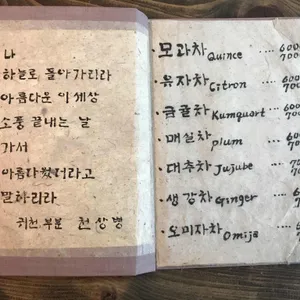 나
하늘로 돌아가리라
아름다운 이 세상
소풍 끝내는 날
가서
아름다웠더라고
말하리라
귀천 부분 천상병
· 모과차 Quince .... 600
700
· 유자차 Citron .... 600
700
· 금귤차 Kumquart .... 600
700
· 매실차 plum .... 600
700
· 대추차 Jujube ....
· 생강차 Ginger ....
· 오미자차 Omija ....